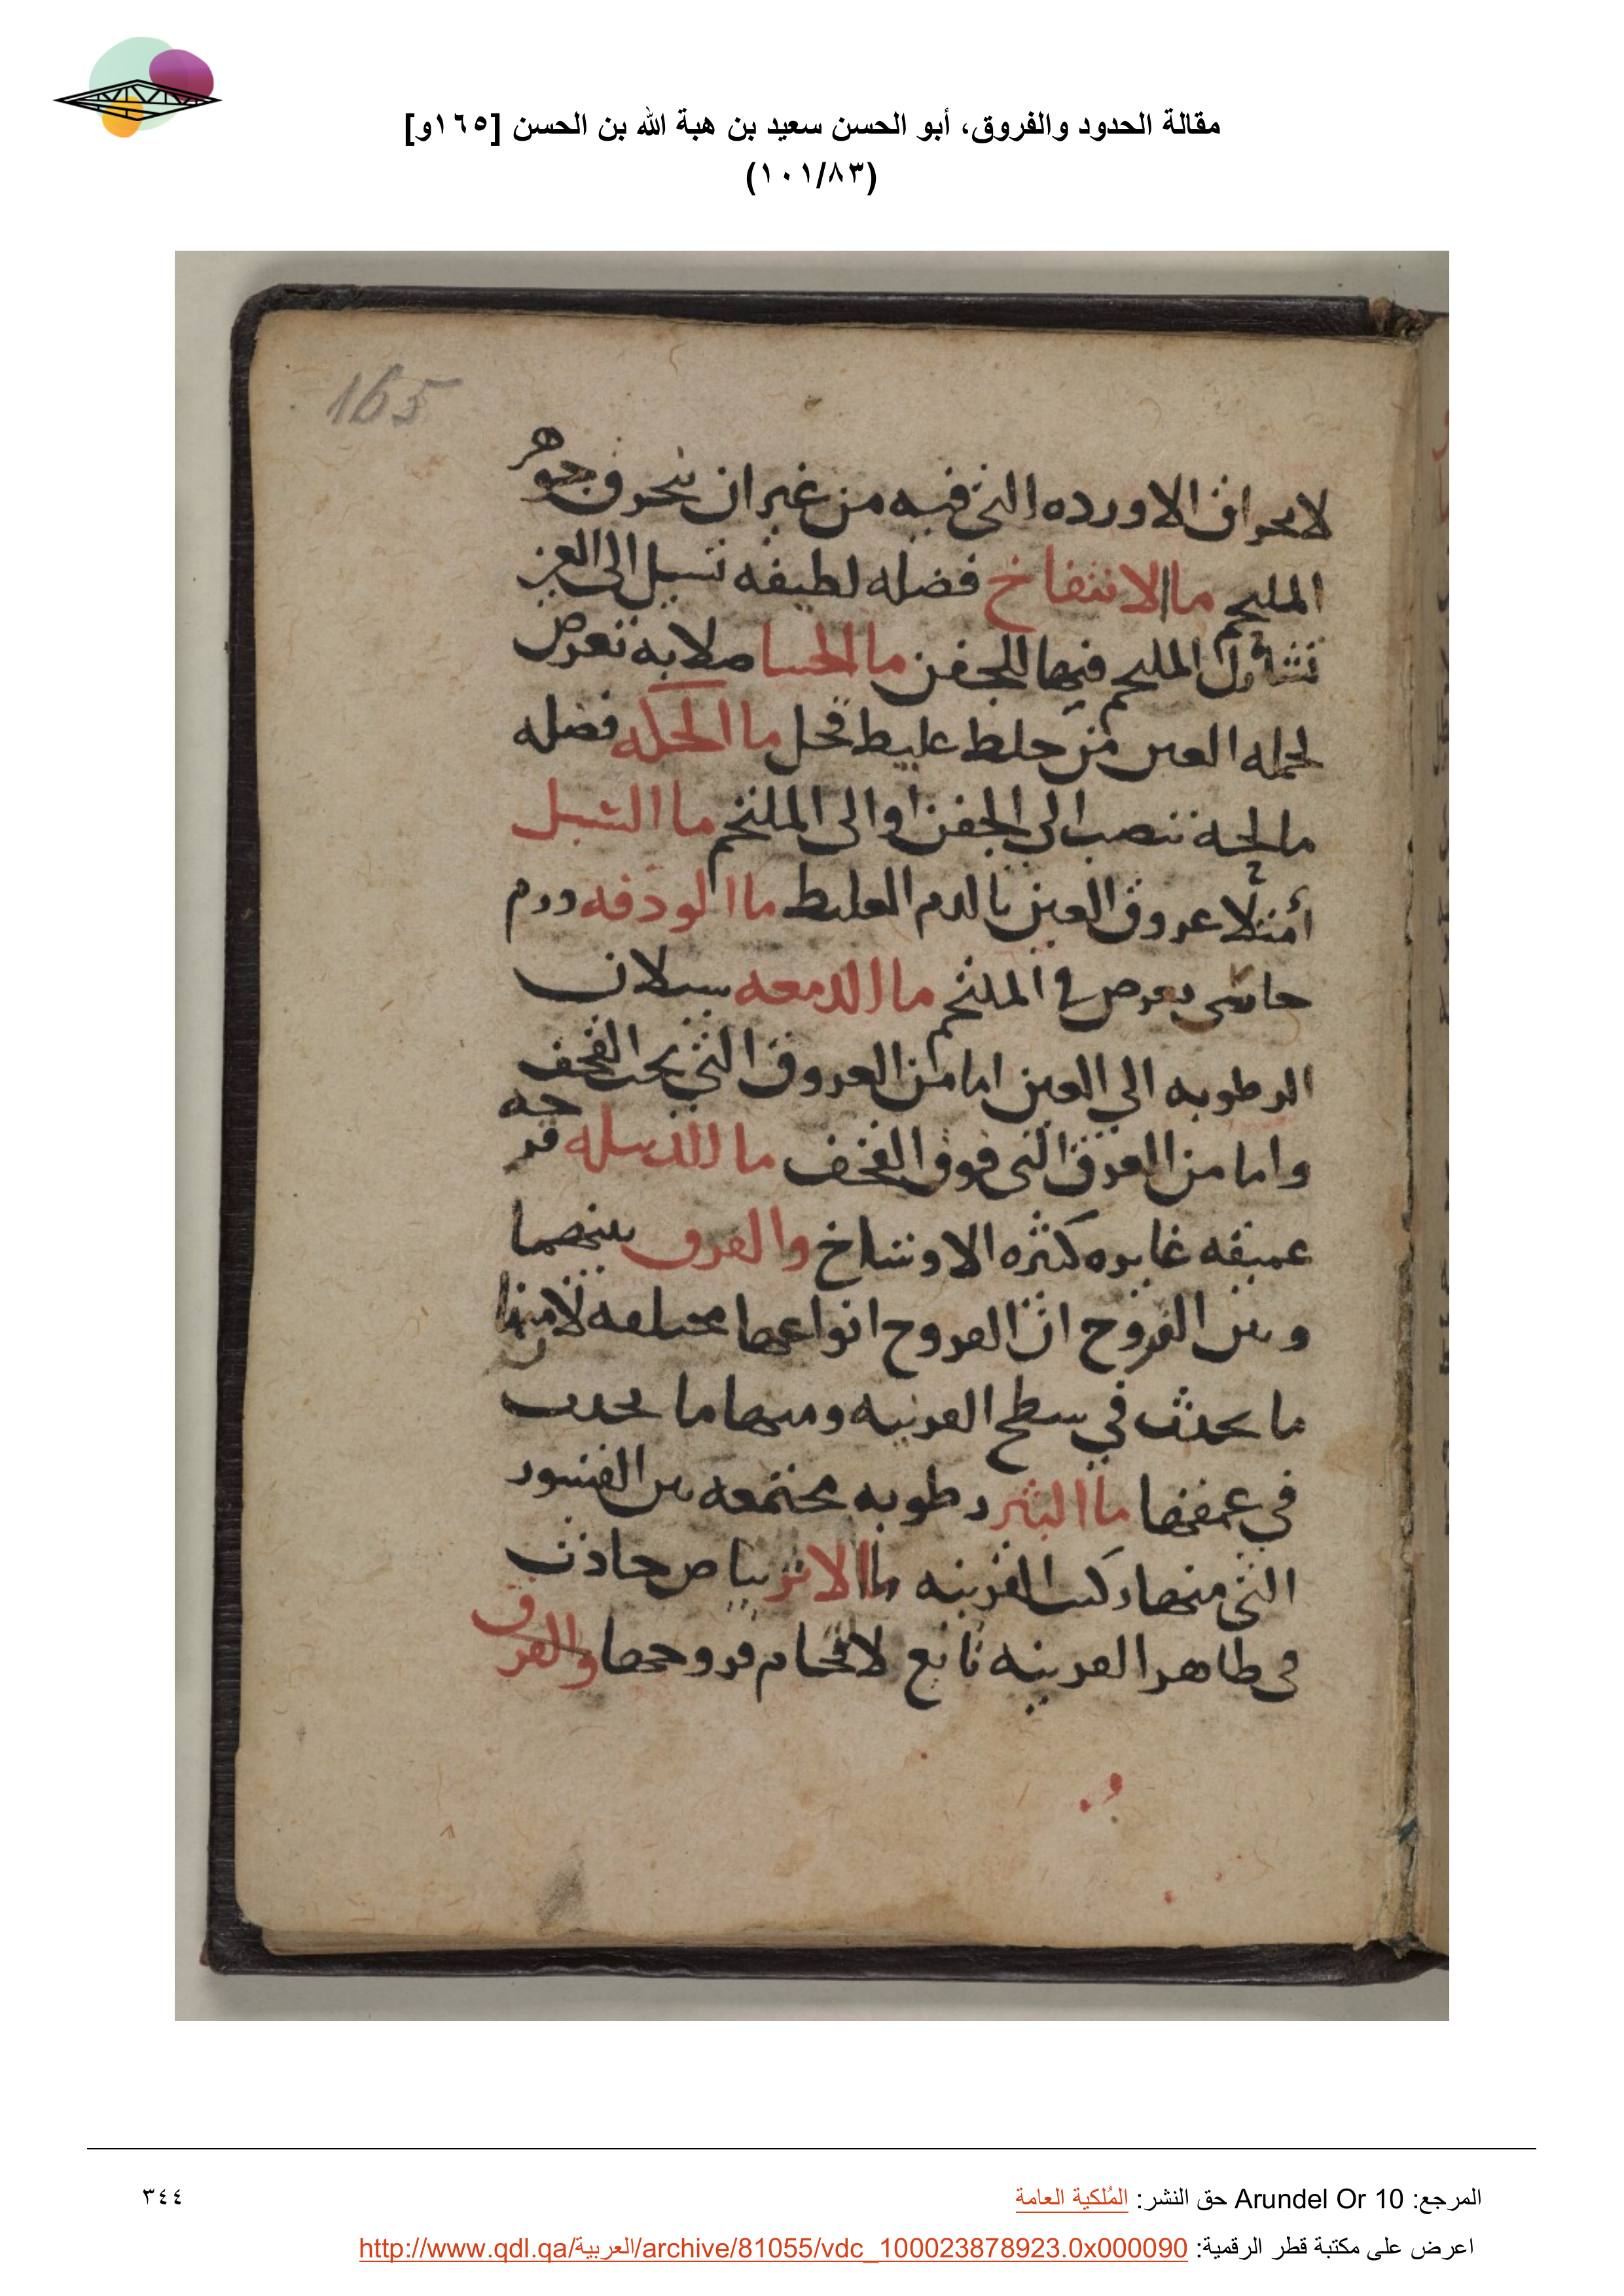 مقالة الحدود والفروق، أبو الحسن سعيد بن هبة الله بن الحسن [١٦٥و]
(١٠١/٨٣)
165
لانحراق الاورده التى فيه من غير ان ينحرق جوهر
الملتحم ما الانتفاخ فضله لطيفه تسيل الى العين
تشارك الملتحم فيها الجفن ما الجسا صلابه تعرض
لجمله العين من خلط غليظ قحل ما الحكه فضله
مالحة تنصب الى الجفن او الى الملتحم ما السبل
أمتلا عروق العين بالدم الغليظ ما الودقه ورم
جاسى يعرض فى الملتحم ما الدمعه سيلان
الرطوبه الي العين اما من العروق التي تحت القحف
واما من العرق التى فوق القحف ما الدبيله قرحه
عميقه غايره كثيره الاوساخ والفرق بينهما
وبين القروح ان القروح انواعها مختلفه لان منها
ما يحدث في سطح القرنيه ومنها ما يحدث
في عمقها ما البثر رطوبه مجتمعه بين القشور
التى منها ركب القرنيه ما الاثر بياض حادث
فى ظاهر القرنيه تابع لالتحام قروحها والفرق
المرجع: Arundel Or 10 حق النشر: المُلكية العامة
٣٤٤
اعرض على مكتبة قطر الرقمية: http://www.qdl.qa/العربية/archive/81055/vdc_100023878923.0x000090